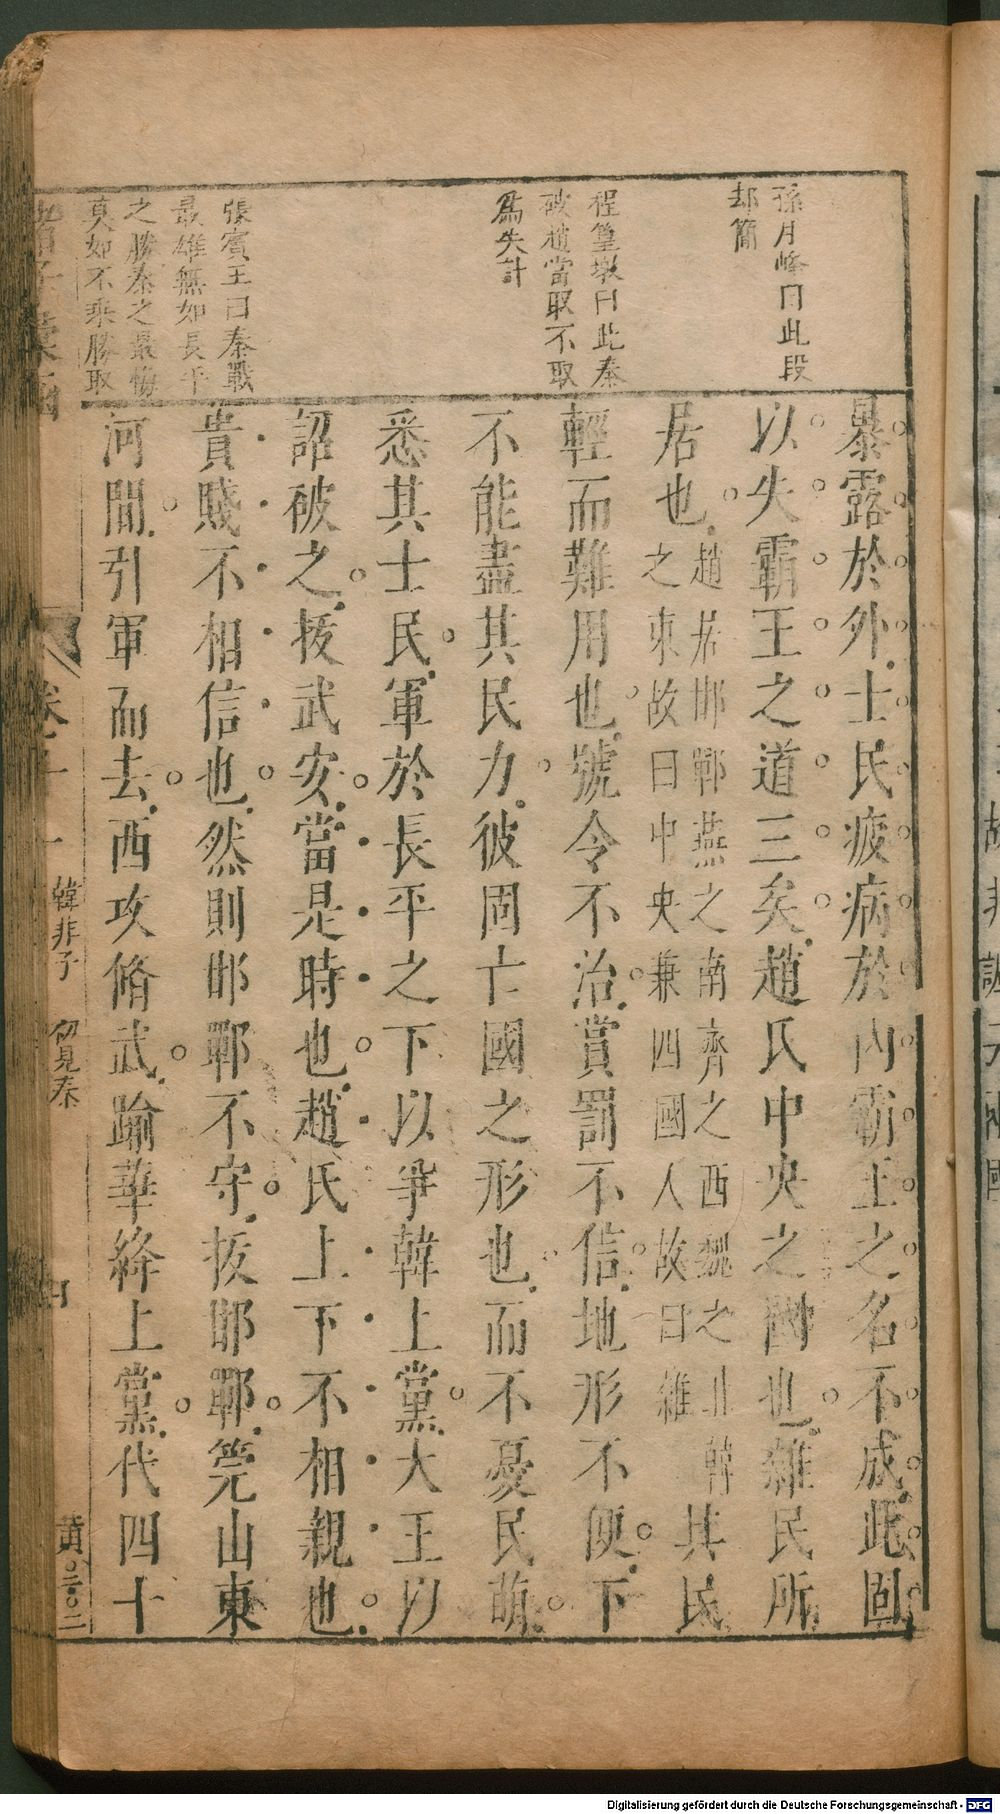 孫月峰曰此段
却簡
程篁墩曰此秦
破趙當取不取
爲失計
張賓王曰秦戰
最雄無如長平
之勝秦之最悔
莫如不乘勝取
暴露於外士民疲病於內霸王之名不成此固
以失霸王之道三矣趙氏中央之國也雜民所
居也
趙居邯鄲燕之南齊之西魏之北韓
之東故曰中央兼四國人故曰雜
其民
輕而難用也號令不治賞罰不信地形不便下
不能盡其民力彼固亡國之形也而不憂民萌
悉其士民軍於長平之下以爭韓上黨大王以
詔破之拔武安當是時也趙氏上下不相親也
貴賤不相信也然則邯鄲不守拔邯鄲筦山東
河間引軍而去西攻脩武踰華絳上黨代四十
卷十一 韓非子 初見秦
黃
Digitalisierung gefördert durch die Deutsche Forschungsgemeinschaft - DFG